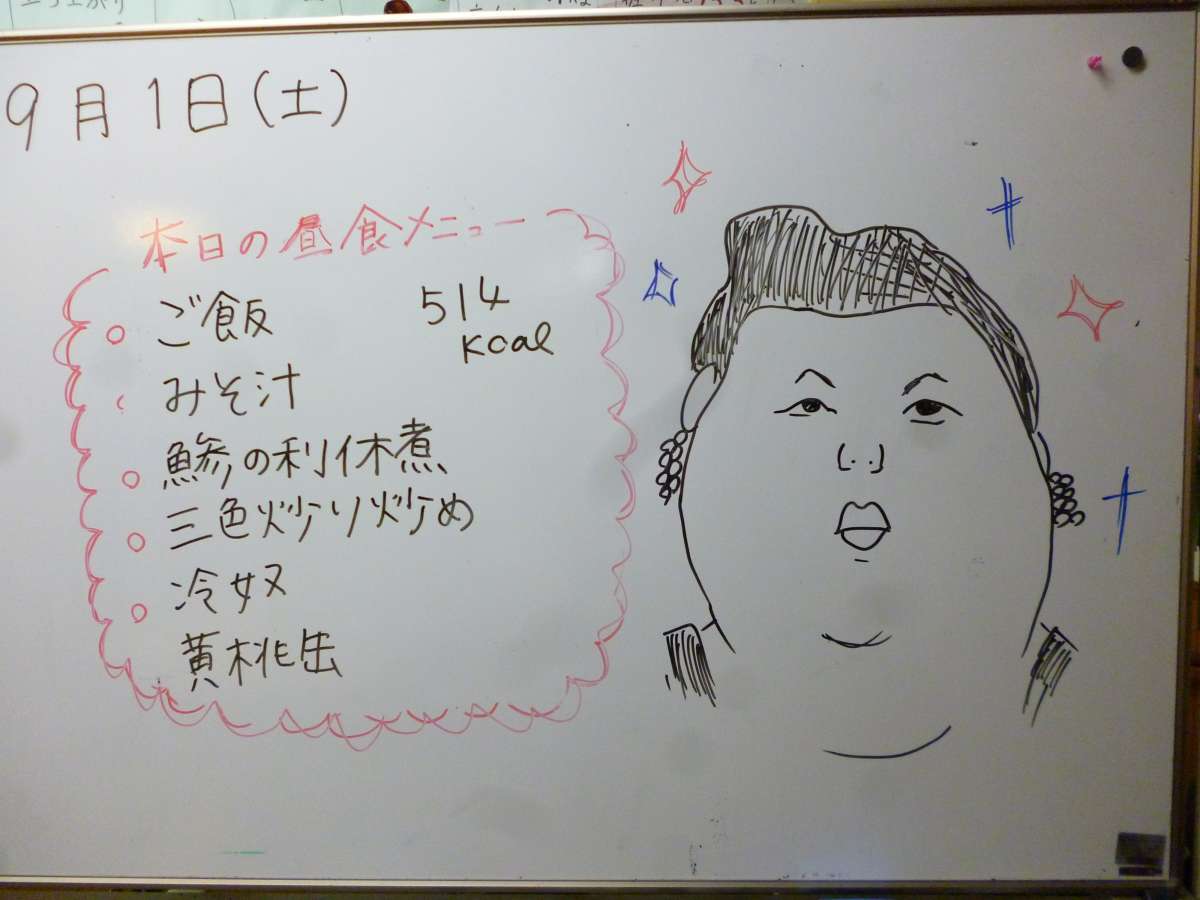 9月1日(土)
本日の昼食メニュー
ご飯 514
kcal
みそ汁
鯵の利休煮
三色炒り炒め
冷奴
黄桃缶